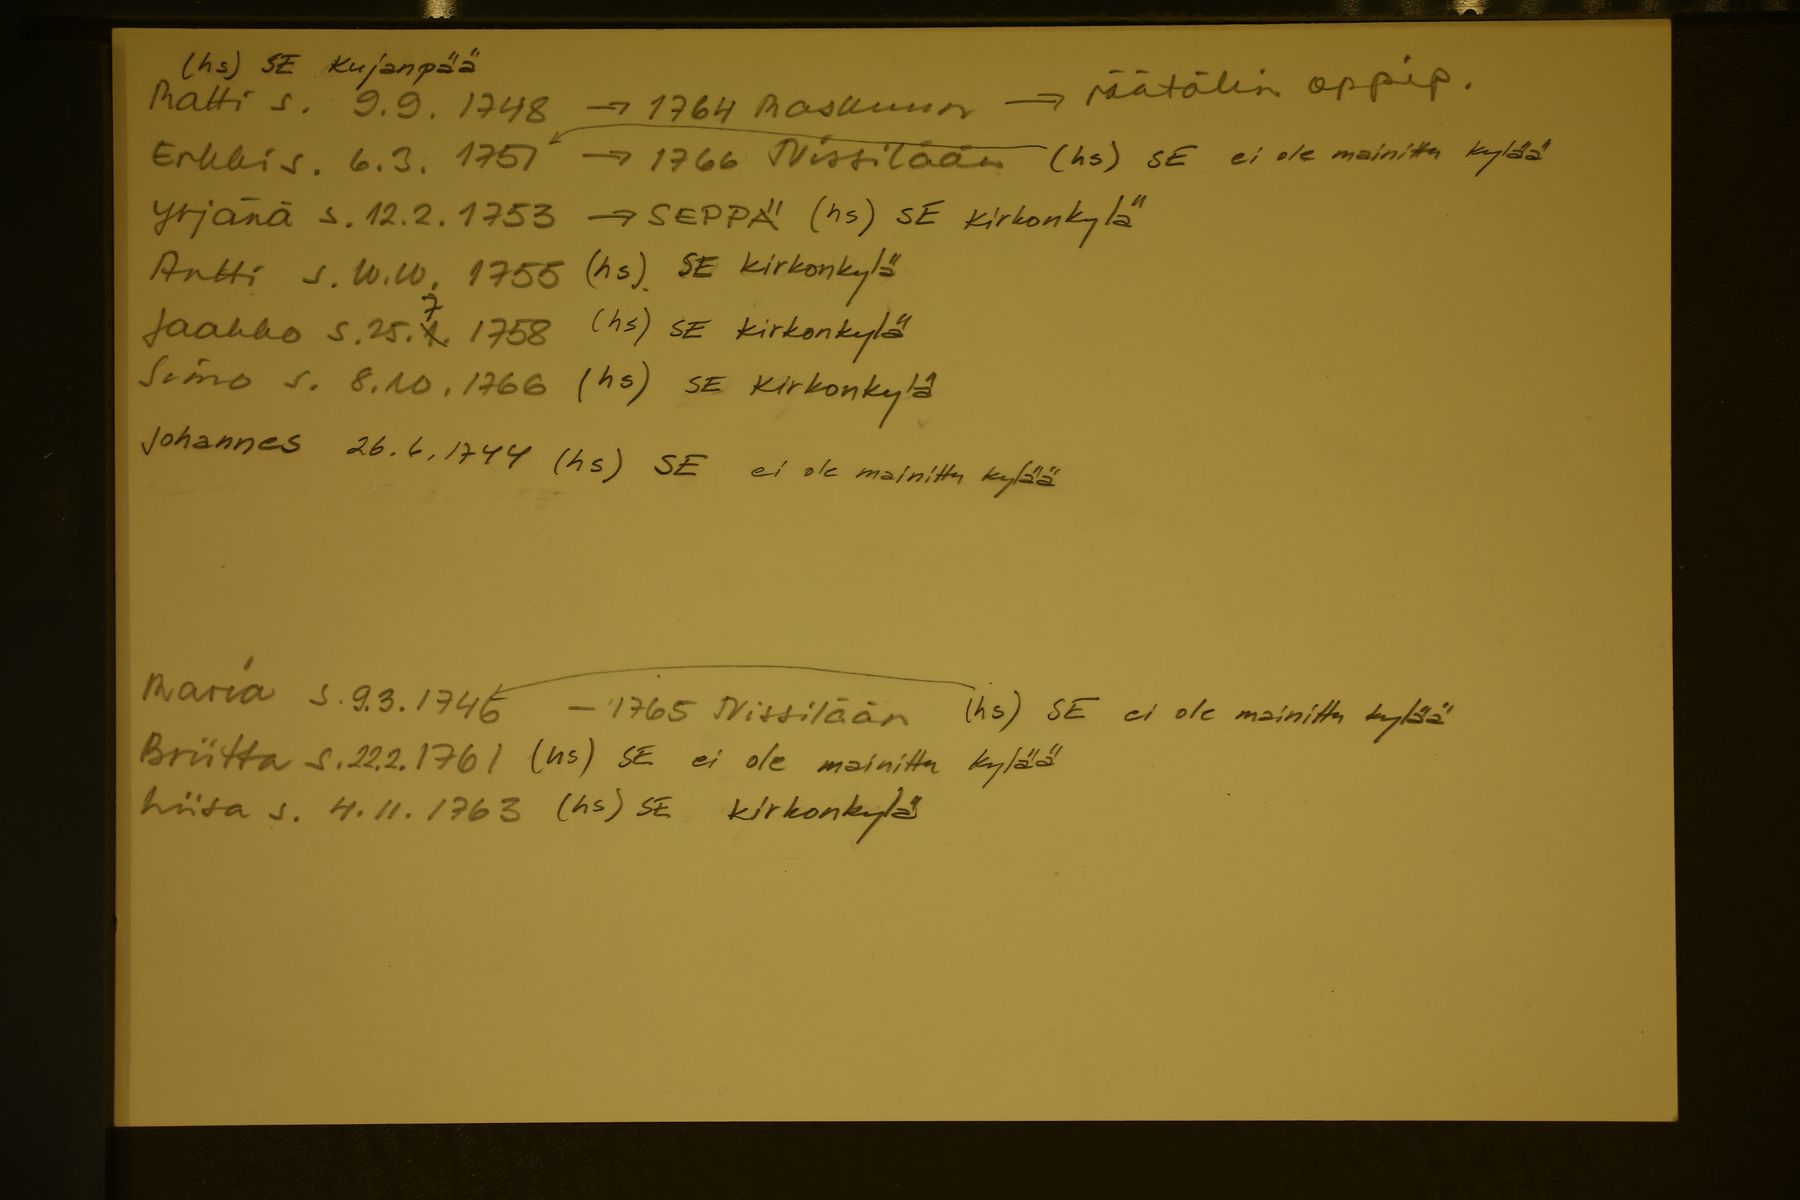 (hs) SE Kujanpää
Matti s. 9.9. 1748 → 1764 Maskuun → räätälin oppip.
Erkki s. 6.3. 1751 → 1766 Nissilään (hs) SE ei ole mainittu kylää
Yrjänä s. 12.2. 1753 → SEPPÄ (hs) SE Kirkonkylä
Antti s. 10.10. 1755 (hs). SE Kirkonkylä
Jaakko s. 25.7. 1758 (hs) SE Kirkonkylä
Simo s. 8.10. 1766 (hs) SE Kirkonkylä
Johannes 26.6.1744 (hs) SE ei ole mainittu kylää
Maria s. 9.3. 1746 – 1765 Nissilään (hs) SE ei ole mainittu kylää
Briitta s. 22.2. 1761 (hs) SE ei ole mainittu kylää
Liisa s. 4.11. 1763 (hs) SE Kirkonkylä